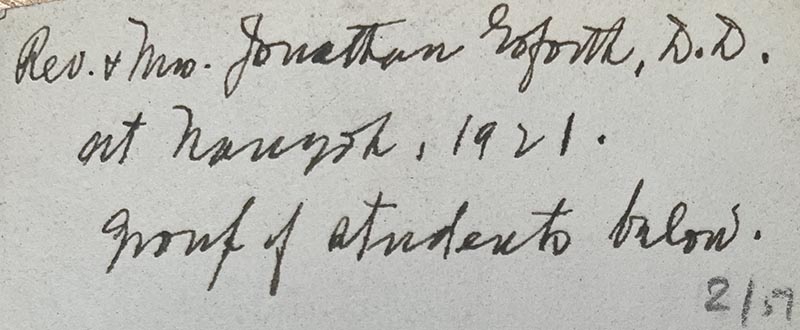 Rev. & Mrs. Jonathan Goforth, D.D.
at Nanyoh, 1921.
Group of students below.
2/